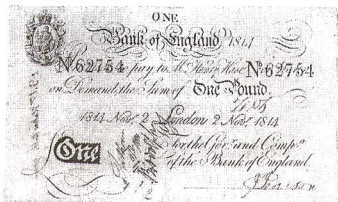 ONE
Bank of England 1814
No 62754 pay to Mr. Henry Hase No 62754
on Demand, the Sum of One Pound.
1814 Nov. 2 London 2 Nov. 1814
For the Gov.r and Comp.a
One of the Bank of England.